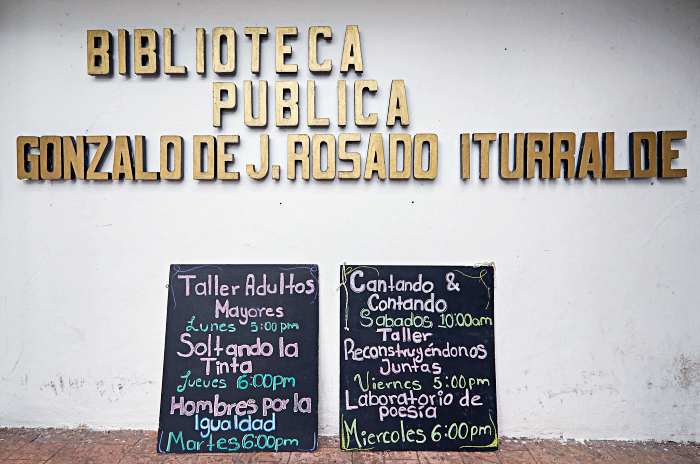 BIBLIOTECA
PUBLICA
GONZALO DE J. ROSADO ITURRALDE
Taller Adultos
Mayores
Lunes 5:00 pm
Soltando la
Tinta
Jueves 6:00pm
Hombres por la
Igualdad
Martes 6:00pm
Cantando &
Contando
Sabados 10:00am
Taller
Reconstruyéndonos
Juntas
Viernes 5:00pm
Laboratorio de
poesía
Miercoles 6:00pm